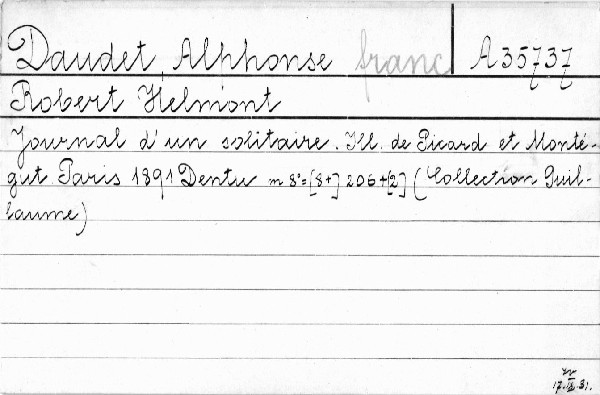 Daudet, Alphonse franc A 35737
Robert Helmont
Journal d'un solitaire. Ill. de Picard et Monté-
gut. Paris 1891 Dentu m 8°=[8+] 206+[2] (Collection Guil-
laume)
17.IX.31.